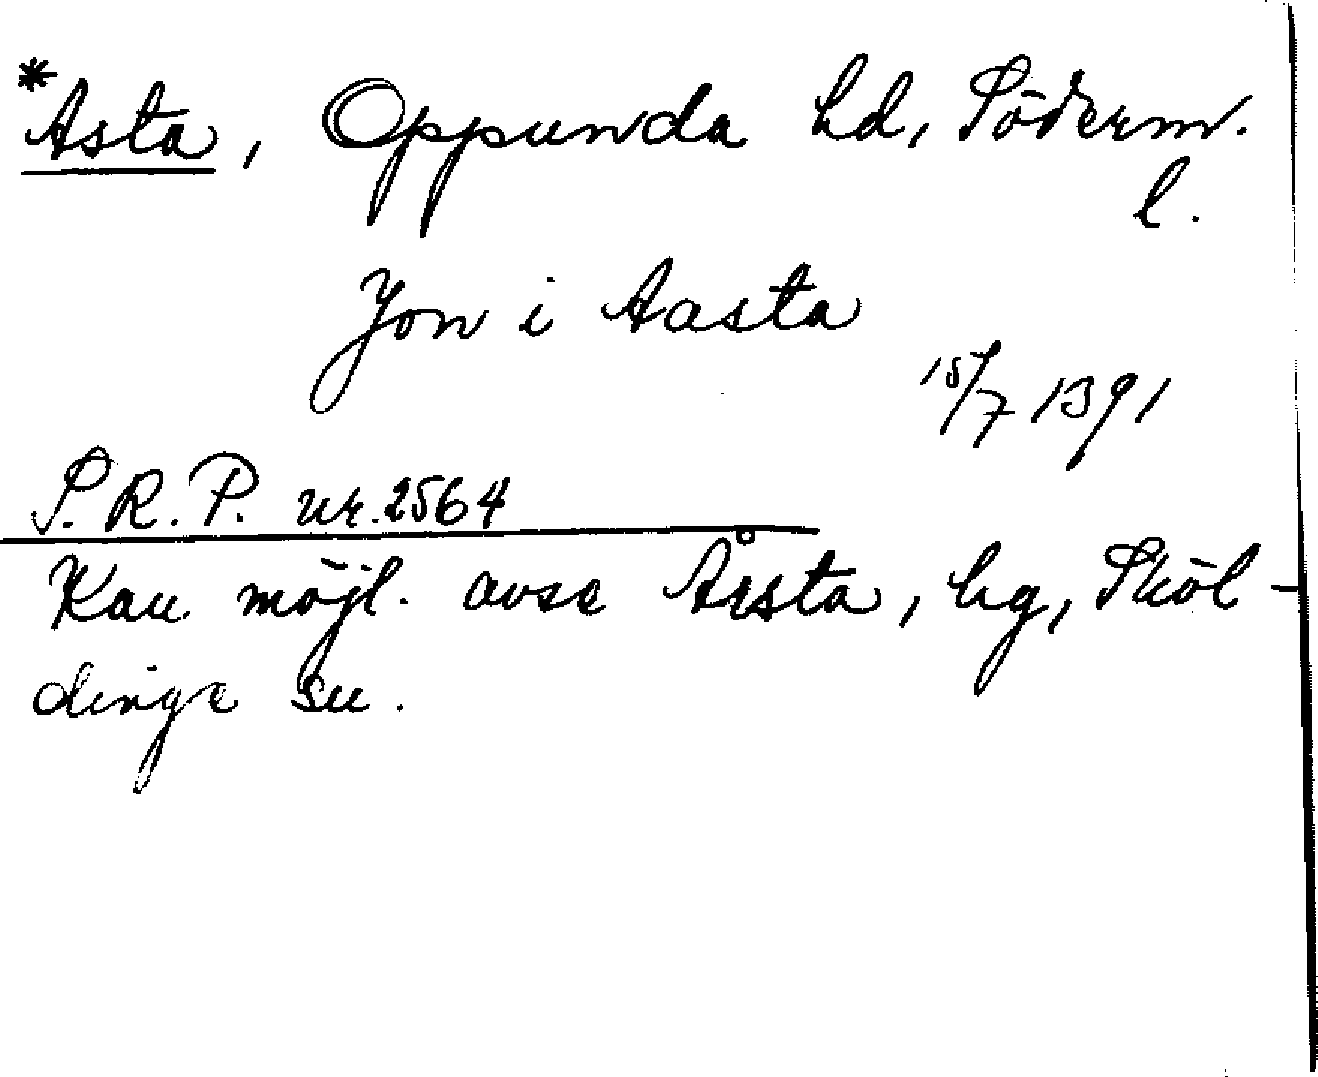 *Asta, Oppunda hd, Söderm.
l.
Jon i Aasta
15/7 1391
S.R.P. nr. 2564
Kan möjl. avse Årsta, hg, Sköl-
dinge sn.